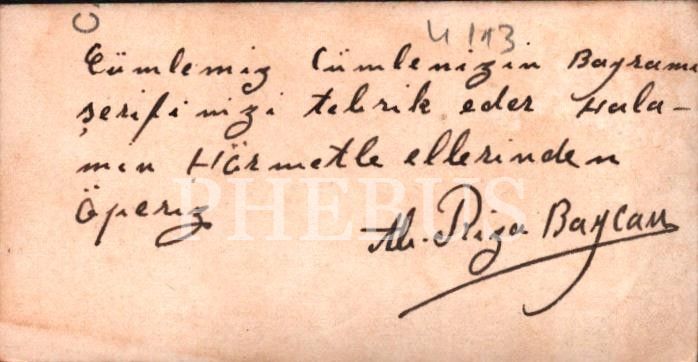 4113
Cümlemiz Cümlenizin Bayramı
şerifinizi tebrik eder Hala-
mın Hörmetle ellerinden
Öperiz
PHEBUS
Riza Baycan